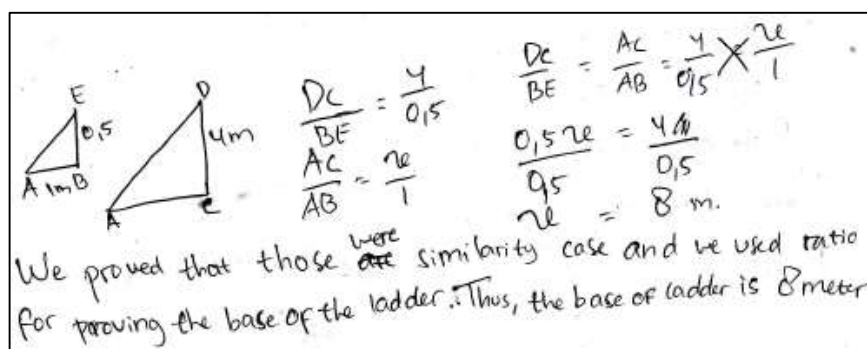 E
0,5
A 1m B
D
4m
A
C
DC/BE = 4/0,5
AC/AB = x/1
DC/BE = AC/AB = 4/0,5 = x/1
0,5x/0,5 = 4/0,5
x = 8 m.
We proved that those were similarity case and we used ratio
for proving the base of the ladder. Thus, the base of ladder is 8 meter